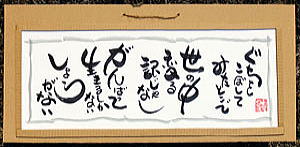 ぐちを
こぼして
みたとこで
世の中
変る
訳じゃなし
がんばって
生きるしか
しょう
がない